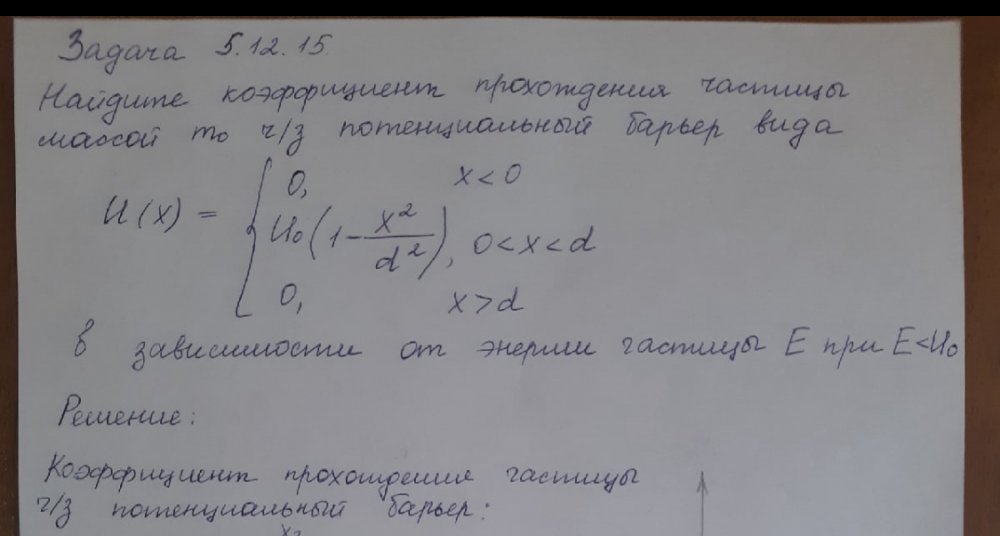 Задача 5.12.15.
Найдите коэффициент прохождения частицы
массой m₀ ч/з потенциальный барьер вида
U(x) = { 0, x < 0
U₀(1 - x²/d²), 0 < x < d
0, x > d
в зависимости от энергии частицы E при E<U₀
Решение:
Коэффициент прохождения частицы
ч/з потенциальный барьер:
x₂